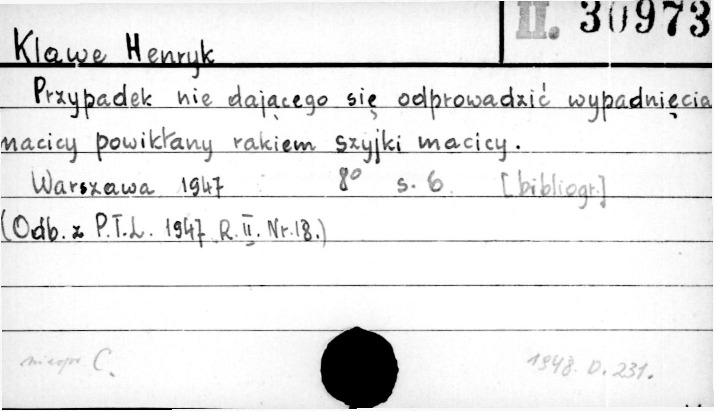 II. 30973
Klawe Henryk
Przypadek nie dającego się odprowadzić wypadnięcia
macicy powikłany rakiem szyjki macicy.
Warszawa 1947 8° s. 6 [bibliogr.]
(Odb. z P.T.L. 1947 R. II. Nr. 18.)
C.
1948. D. 231.